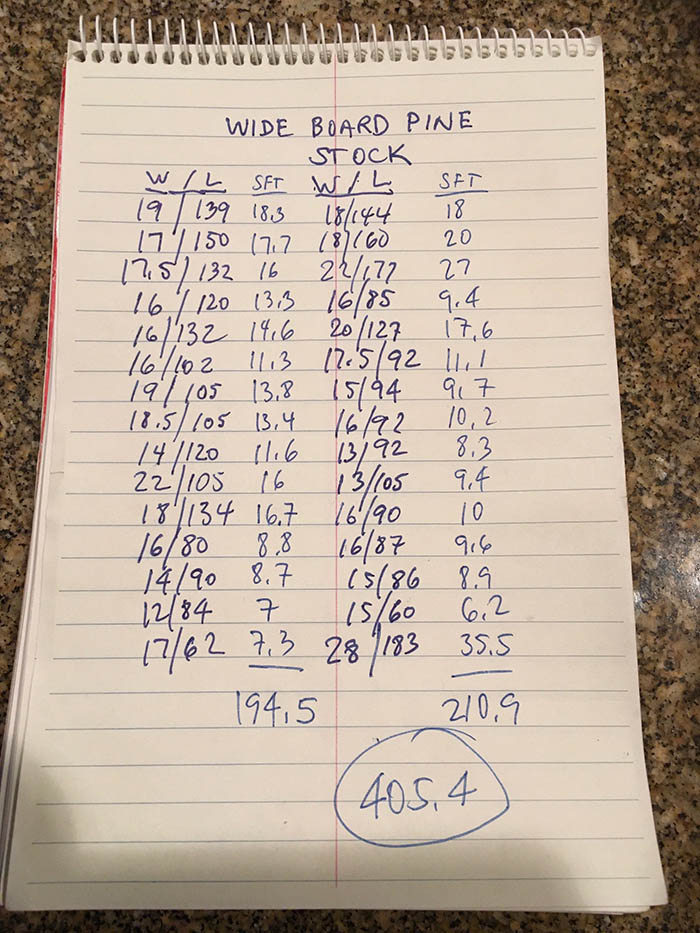 WIDE BOARD PINE
STOCK
W / L SFT W / L SFT
19 / 139 18.3 18/144 18
17 / 150 17.7 18/160 20
17.5 / 132 16 22/177 27
16 / 120 13.3 16/85 9.4
16/132 14.6 20/127 17.6
16/102 11.3 17.5/92 11.1
19 / 105 13.8 15/94 9.7
18.5/105 13.4 16/92 10.2
14/120 11.6 13/92 8.3
22/105 16 13/105 9.4
18/134 16.7 16/90 10
16/80 8.8 16/87 9.6
14/90 8.7 15/86 8.9
12/84 7 15/60 6.2
17/62 7.3 28/183 35.5
194.5 210.9
405.4